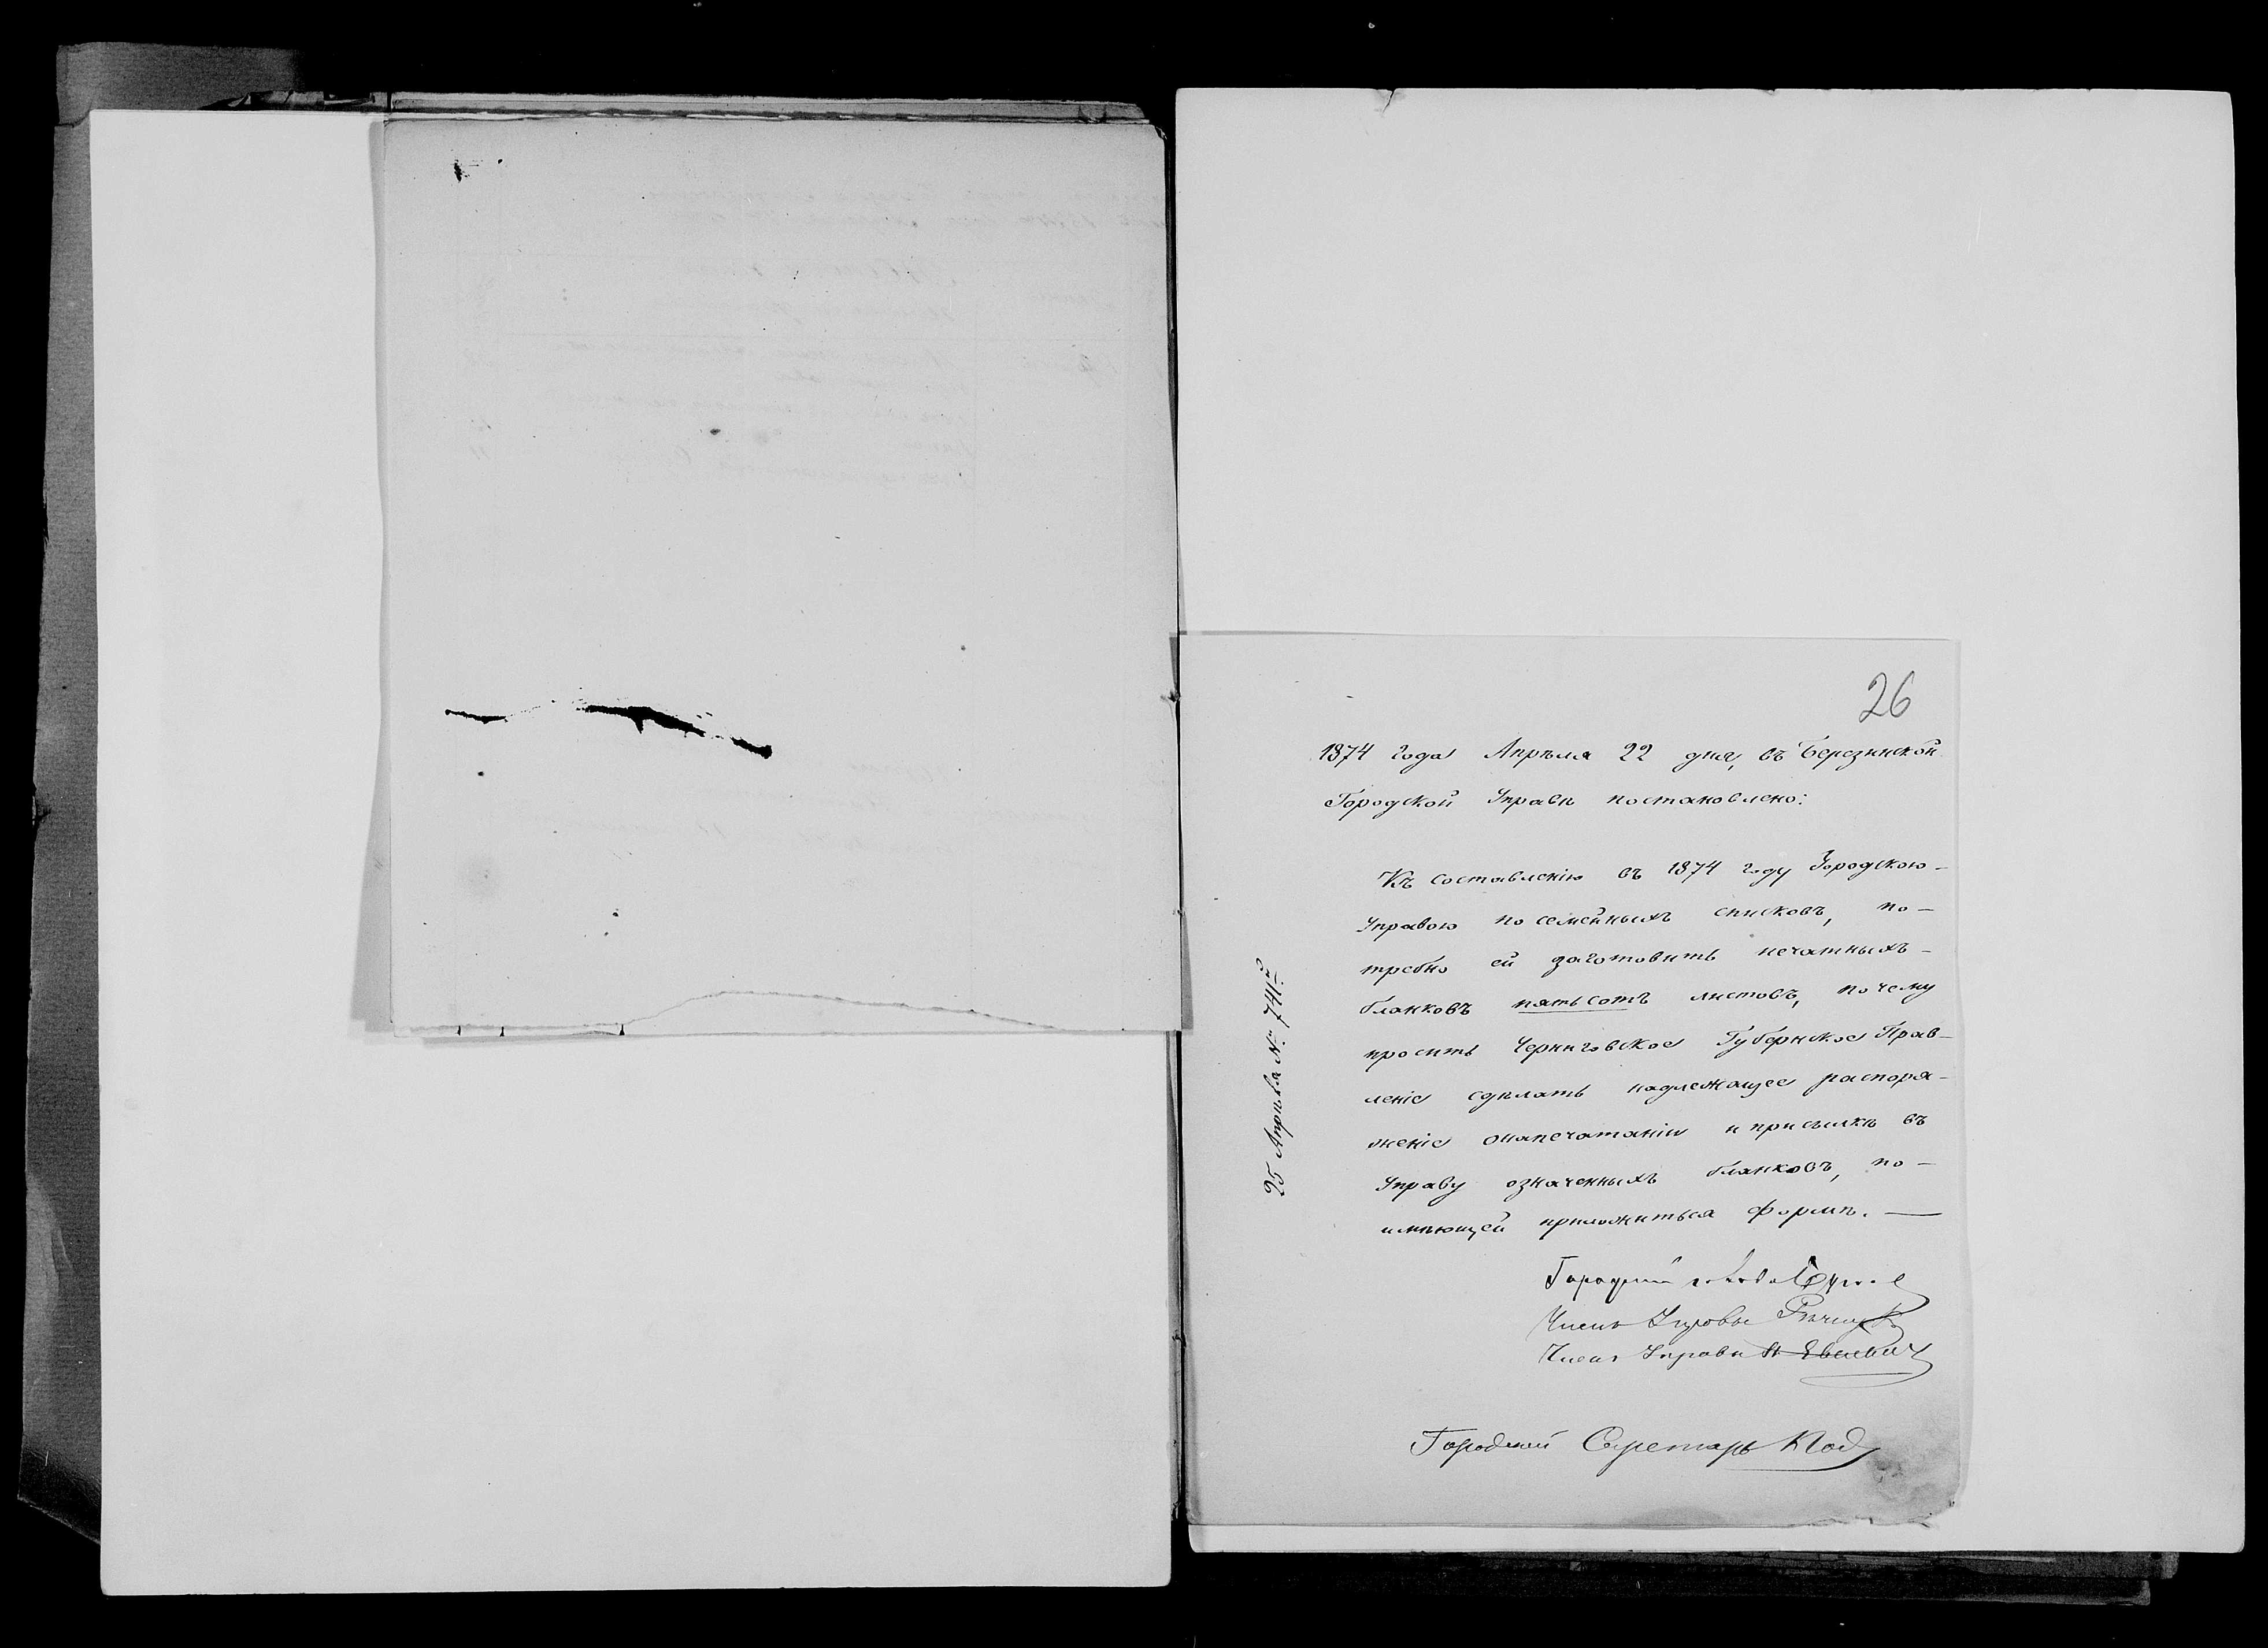 26
1874 года Апрѣля 22 дня, въ Березинской
Городской Управѣ постановлено:
Къ составленію въ 1874 году Городскою-
Управою посемейныхъ списковъ, по-
требно ей заготовить печатныхъ-
бланковъ пятьсотъ листовъ, почему
просить Черниговское Губернское Прав-
леніе сдѣлать надлежащее распоря-
женіе онапечатаніи и присылкѣ въ
Управу означенныхъ бланковъ, по-
имѣющей приложиться формѣ. —
25 Апрѣля № 741й
Городской голова
Членъ Управы
Членъ Управы
Городской Секретарь